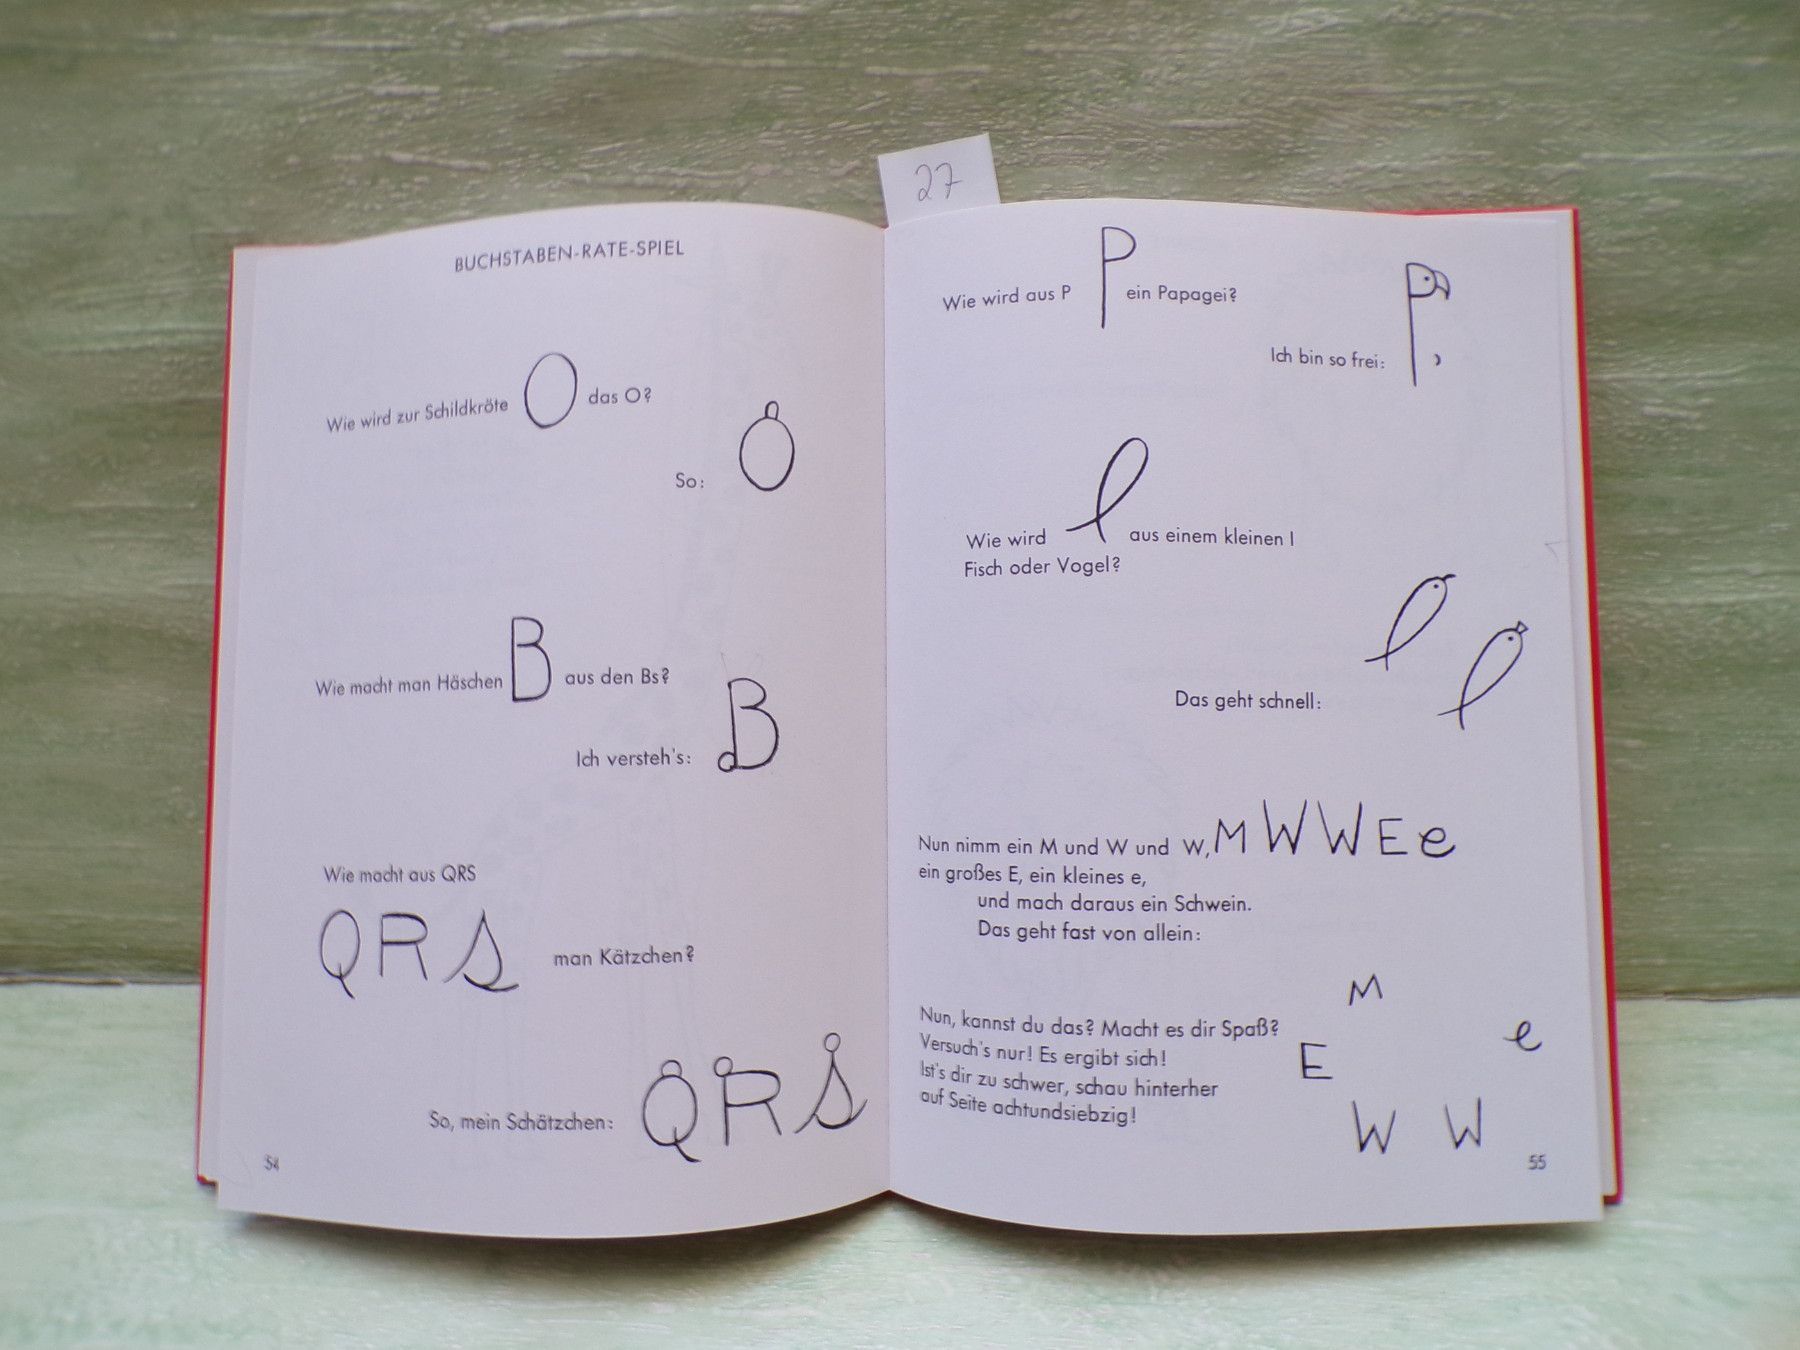 27
BUCHSTABEN-RATE-SPIEL
Wie wird zur Schildkröte O das O?
So: O
Wie macht man Häschen B aus den Bs?
Ich versteh's: B
Wie macht aus QRS
Q R S man Kätzchen?
So, mein Schätzchen: Q R S
54
Wie wird aus P P ein Papagei?
Ich bin so frei: P
Wie wird l aus einem kleinen l
Fisch oder Vogel?
Das geht schnell: l l
Nun nimm ein M und W und W, M W W E e
ein großes E, ein kleines e,
und mach daraus ein Schwein.
Das geht fast von allein:
M
E e
W W
Nun, kannst du das? Macht es dir Spaß?
Versuch's nur! Es ergibt sich!
Ist's dir zu schwer, schau hinterher
auf Seite achtundsiebzig!
55